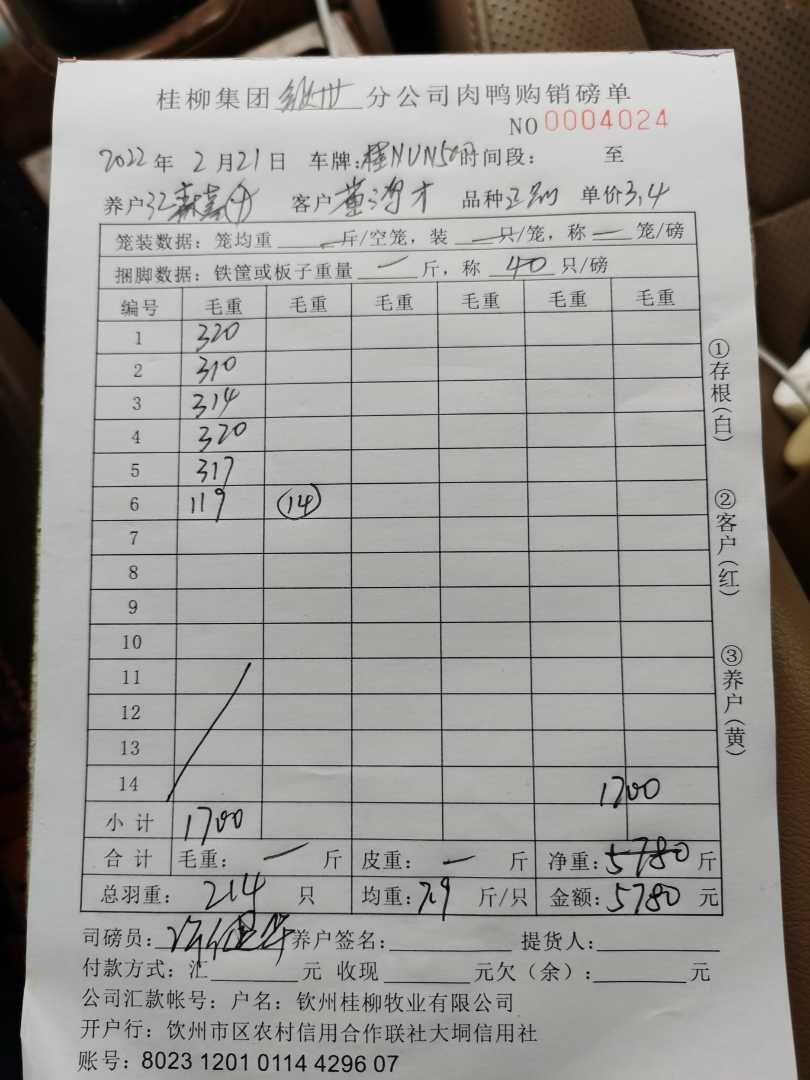 桂柳集团 分公司肉鸭购销磅单
NO 0004024
2022 年 2 月 21 日 车牌: 时间段: 至
养户 客户 黄 才 品种 单价 3.4
笼装数据: 笼均重 — 斤/空笼, 装 — 只/笼, 称 — 笼/磅
捆脚数据: 铁筐或板子重量 — 斤, 称 40 只/磅
编号 毛重 毛重 毛重 毛重 毛重 毛重
1 320
2 310
3 314
4 320
5 317
6 119 14
7
8
9
10
11
12
13
14 1700
小计 1700
合计 毛重: — 斤 皮重: — 斤 净重: 5780 斤
总羽重: 214 只 均重: 7.9 斤/只 金额: 5780 元
司磅员: 养户签名: 提货人:
付款方式: 汇 元 收现 元欠(余): 元
公司汇款帐号: 户名: 钦州桂柳牧业有限公司
开户行: 钦州市区农村信用合作联社大垌信用社
账号: 8023 1201 0114 4296 07
①存根(白)
②客户(红)
③养户(黄)